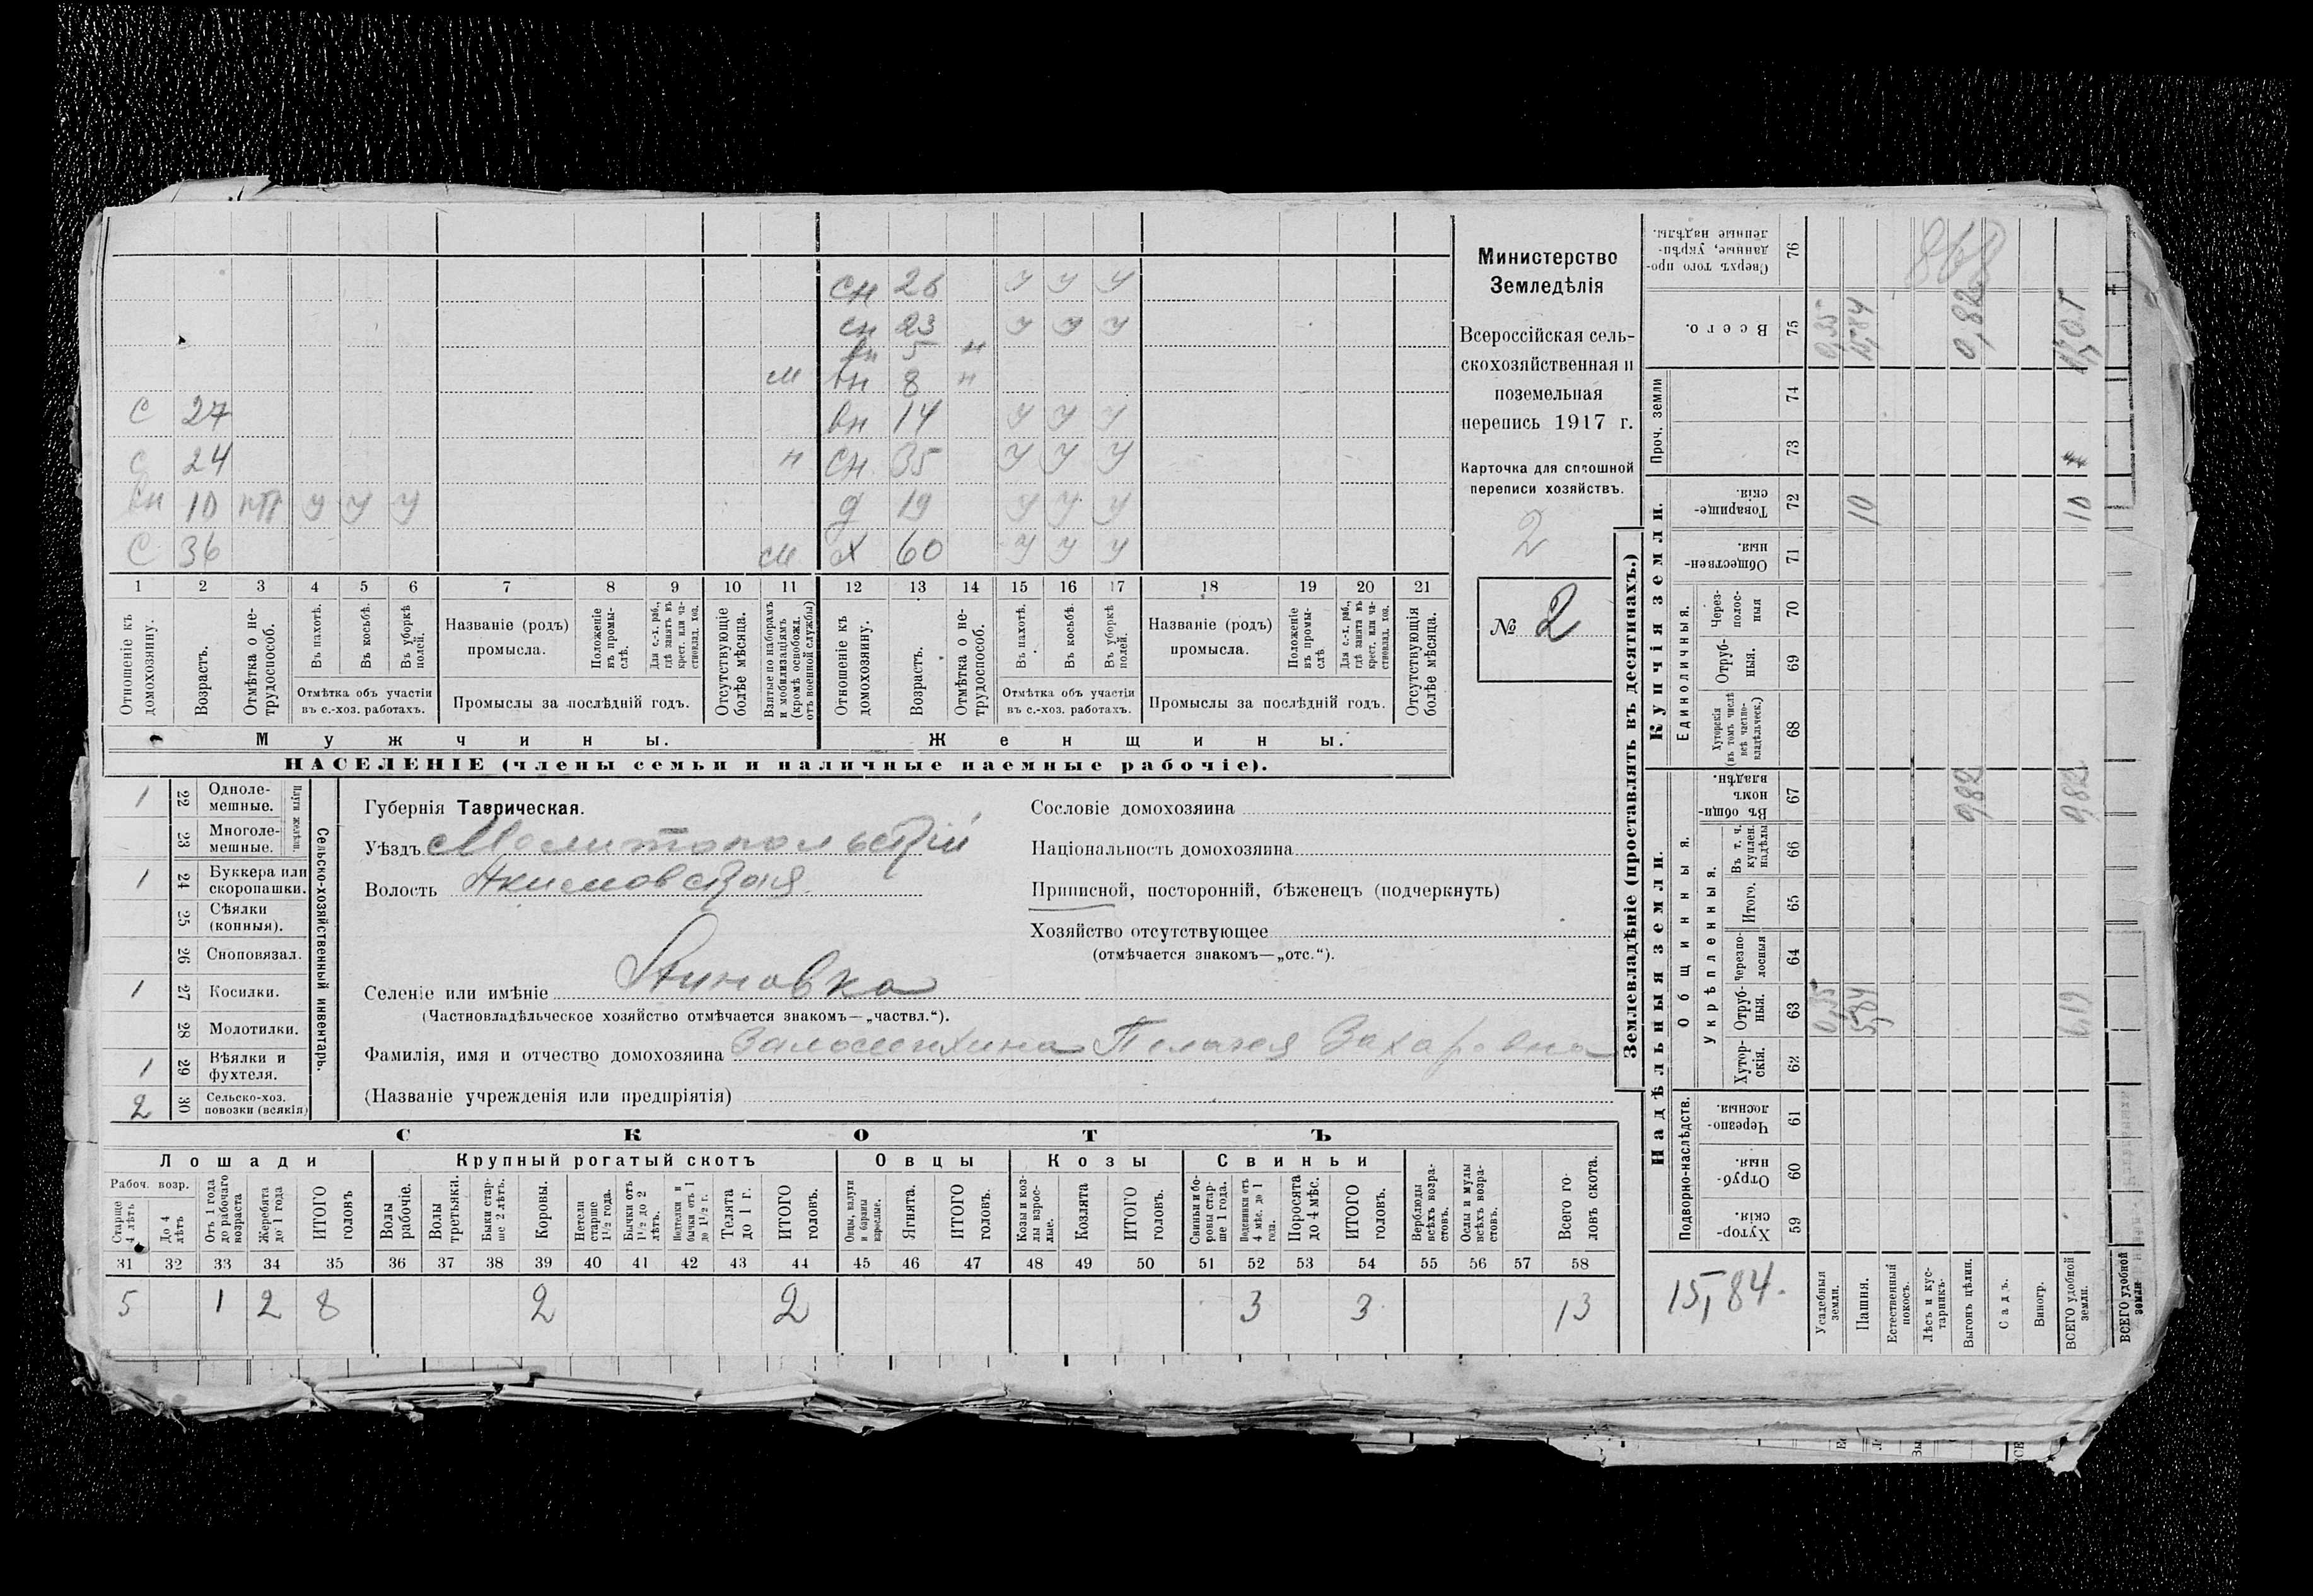 сн 26 у у у
сн 23 у у у
вн 5 н
м вн 8 н
с 27 вн 14 у у у
с 24 н сн 35 у у у
вн 10 у у у д 19 у у у
с 36 м х 60 у у у
1 2 3 4 5 6 7 8 9 10 11 12 13 14 15 16 17 18 19 20 21
Отношеніе къ домохозяину.
Возрастъ.
Отмѣтка о не-трудоспособ.
Въ пахотѣ.
Въ косьбѣ.
Въ уборкѣ полей.
Отмѣтка объ участіи
въ с.-хоз. работахъ.
Названіе (родъ)
промысла.
Положеніе въ промы-слѣ.
Для с.-х. раб., гдѣ занятъ въ крест. или ча-стновлад. хоз.
Промыслы за послѣдній годъ.
Отсутствующіе болѣе мѣсяца.
Взятые по наборамъ и мобилизаціямъ (кромѣ освобожд. отъ военной службы)
Отношеніе къ домохозяину.
Возрастъ.
Отмѣтка о не-трудоспособ.
Въ пахотѣ.
Въ косьбѣ.
Въ уборкѣ полей.
Отмѣтка объ участіи
въ с.-хоз. работахъ.
Названіе (родъ)
промысла.
Положеніе въ промы-слѣ.
Для с.-х. раб., гдѣ занята въ крест. или ча-стновлад. хоз.
Промыслы за послѣдній годъ.
Отсутствующія болѣе мѣсяца.
Мужчины. Женщины.
НАСЕЛЕНІЕ (члены семьи и наличные наемные рабочіе).
Министерство
Земледѣлія
Всероссійская сель-
скохозяйственная и
поземельная
перепись 1917 г.
Карточка для сплошной
переписи хозяйствъ.
2
№ 2
1 22 Одноле-мешные.
23 Многоле-мешные.
Плуги желѣзн.
1 24 Буккера или скоропашки.
25 Сѣялки (конныя).
26 Сноповязал.
1 27 Косилки.
28 Молотилки.
1 29 Вѣялки и фухтеля.
2 30 Сельско-хоз. повозки (всякія)
Сельско-хозяйственный инвентарь.
Губернія Таврическая.
Уѣздъ Мелитопольскій
Волость Акимовская
Селеніе или имѣніе Анновка
(Частновладѣльческое хозяйство отмѣчается знакомъ—„частвл.“).
Фамилія, имя и отчество домохозяина Пелагея Захаровна
(Названіе учрежденія или предпріятія)
Сословіе домохозяина
Національность домохозяина
Приписной, посторонній, бѣженецъ (подчеркнуть)
Хозяйство отсутствующее
(отмѣчается знакомъ—„отс.“).
СКОТЪ
Лошади Крупный рогатый скотъ Овцы Козы Свиньи
Рабоч. возр.
Старше 4 лѣтъ
До 4 лѣтъ
Отъ 1 года до рабочаго возраста
Жеребята до 1 года
ИТОГО головъ
Волы рабочіе.
Волы третьяки.
Быки стар-ше 2 лѣтъ.
Коровы.
Нетели старше 1½ года.
Бычки отъ 1½ до 2 лѣтъ.
Подтелки и бычки отъ 1 до 1½ г.
Телята до 1 г.
ИТОГО головъ.
Овцы, валухи и бараны взрослые.
Ягнята.
ИТОГО головъ.
Козы и коз-лы взрос-лые.
Козлята
ИТОГО головъ.
Свиньи и бо-ровы стар-ше 1 года.
Подсвинки отъ 4 мѣс. до 1 года.
Поросята до 4 мѣс.
ИТОГО головъ.
Верблюды всѣхъ возра-стовъ.
Ослы и мулы всѣхъ возра-стовъ.
Всего го-ловъ скота.
31 32 33 34 35 36 37 38 39 40 41 42 43 44 45 46 47 48 49 50 51 52 53 54 55 56 57 58
5 1 2 8 2 2 3 3 13
Землевладѣніе (проставлять въ десятинахъ.)
Надѣльныя земли. Купчія земли. Проч. земли
Подворно-наслѣдств.
Общинныя.
Укрѣпленныя.
Единоличныя.
Хутор-скія. 59
Отруб-ныя. 60
Черезпо-лосныя. 61
Хутор-скія. 62
Отруб-ныя. 63 0,35 5,84 6,19
Черезпо-лосныя 64
Итого. 65
Въ т. ч. куплен. надѣлы 66
Въ общин-номъ владѣн. 67 9,82 9,82
Хуторскія (въ томъ числѣ всѣ частно-владѣльческ.) 68
Отруб-ныя. 69
Через-полос-ныя 70
Обществен-ныя. 71
Товарище-скія. 72 10 10
73
74
Всего. 75 0,35 15,84 0,82
Сверхъ того про-данные, укрѣп-ленные надѣлы. 76
868
15,84.
Усадебныя земли.
Пашня.
Естественный покосъ.
Лѣсъ и кус-тарникъ.
Выгонъ цѣлин.
Садъ.
Виногр.
ВСЕГО удобной земли.
ВСЕГО удобной земли